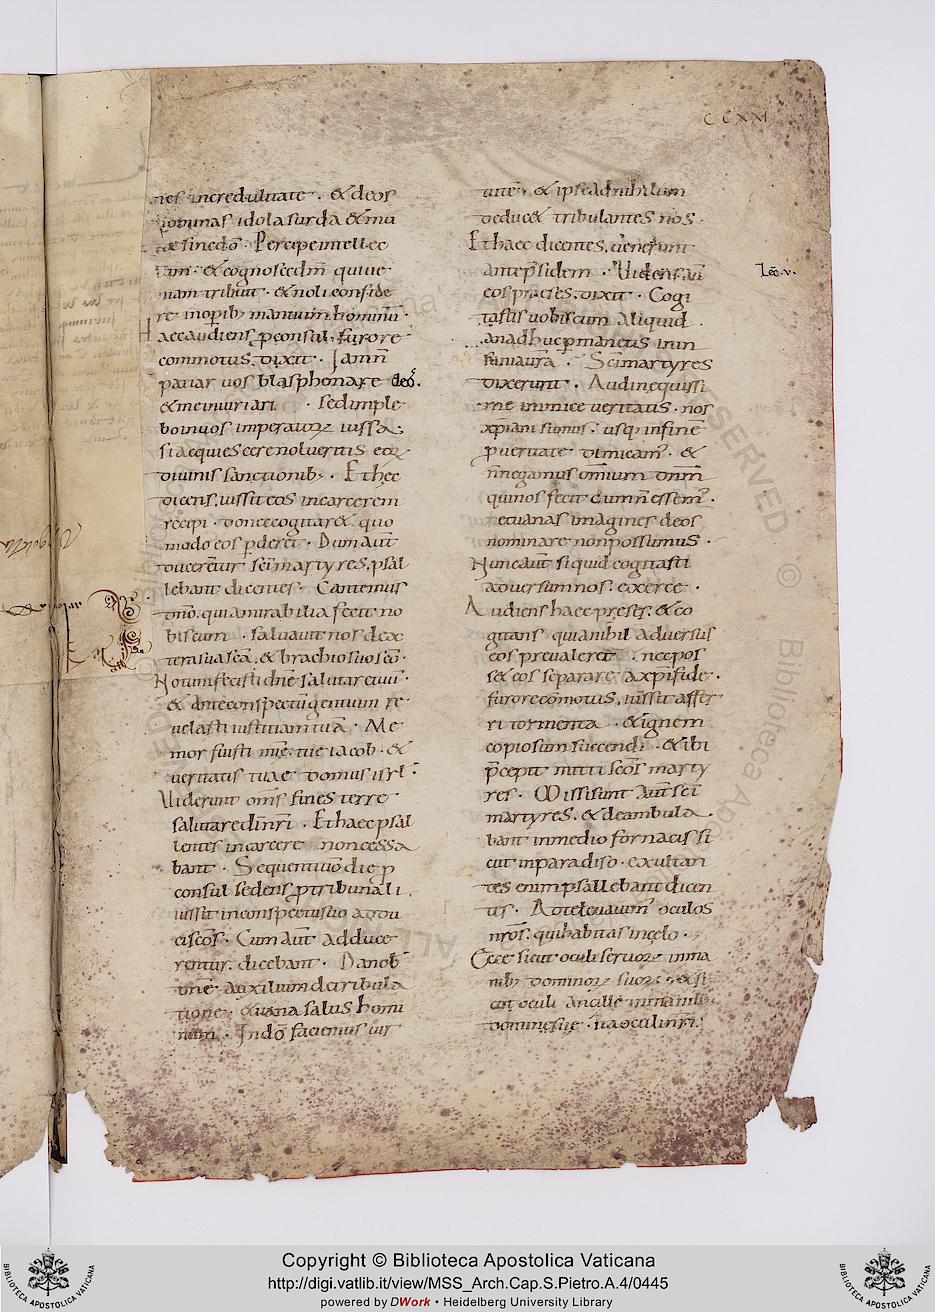 CCXXI
nes incredulitate . & deos
idola surda & mu
sine dō . Percipe intellec
tum . & cognosce dm̄ qui ue
niam tribuit . & noli confide
re in opib; manuum hominū .
Haec audiens p̄consul . furore
commotus . dixit . Iam n̄
patiar uos blasphonare deos .
& me iniuriari . sed imple
bo in uos imperatoꝝ iussa .
si acquiescere nolueritis eoꝝ
diuinis sanctionib; . Et hec
dicens . iussit eos in carcerem
recipi . donec cogitar& . quo
modo eos p̄deret . Dum aūt
ducerentur sc̄i martyres . psal
lebant dicentes . Cantemus
dn̄o . qui mirabilia fecit no
biscum . saluauit nos dex
tera sua sc̄a . & brachio suo sc̄o .
Notum fecisti dn̄e salutare tuū .
& ante conspectū gentium re
uelasti iustitiam tuā . Me
mor fuisti mīe . tue iacob . &
ueritatis tuae domui isrl .
Uiderunt om̄s fines terre
salutare dī nr̄i . Et haec psal
lentes in carcere non cessa
bant . Sequenti uō die p
consul sedens p̄ tribunali .
iussit in conspectu suo addu
ci sc̄os . Cum aūt adduce
rentur . dicebant . Da nob
dn̄e auxilium de tribula
tione . & uana salus homi
num . In dō faciemus uir
tutē . & ipse ad nihilum
deduc& tribulantes nos .
Et haec dicentes . uenerunt
ante p̄sidem . Uidens aū
eos preses . dixit . Cogi
tastis uobiscum aliquid .
an adhuc p̄manetis in in
sania ura . Sc̄i martyres
dixerunt . Audi nequissi
me inimice ueritatis . nos
xp̄iani sumus . usq; in finē
p ueritate dimicam' . &
n̄ negamus om̄ium dn̄m
qui nos fecit cum n̄ essem' .
nec uanas imagines deos
nominare non possumus .
Nunc aūt si quid cogitasti
aduersum nos . exerce .
Audiens haec preses . & co
gitans quia nihil aduersus
eos preualeret . nec pos
s& eos separare a xp̄i fide .
furore cōmotus . iussit affer
ri tormenta . & ignem
copiosum succendi . & ibi
p̄cepit mitti sc̄os marty
res . Missi sunt aūt sc̄i
martyres . & deambula
bant in medio fornacis si
cut in paradiso . exultan
tes enim psallebant dicen
tes . Ad te leuauim' oculos
nr̄os . qui habitas in celo .
Ecce sicut oculi seruoꝝ in ma
nib; dominoꝝ suoꝝ . & si
cut oculi ancille in manib;
domine sue . ita oculi nr̄i .
Leō . v.
Copyright © Biblioteca Apostolica Vaticana
http://digi.vatlib.it/view/MSS_Arch.Cap.S.Pietro.A.4/0445
powered by DWork • Heidelberg University Library
BIBLIOTECA APOSTOLICA VATICANA
BIBLIOTECA APOSTOLICA VATICANA